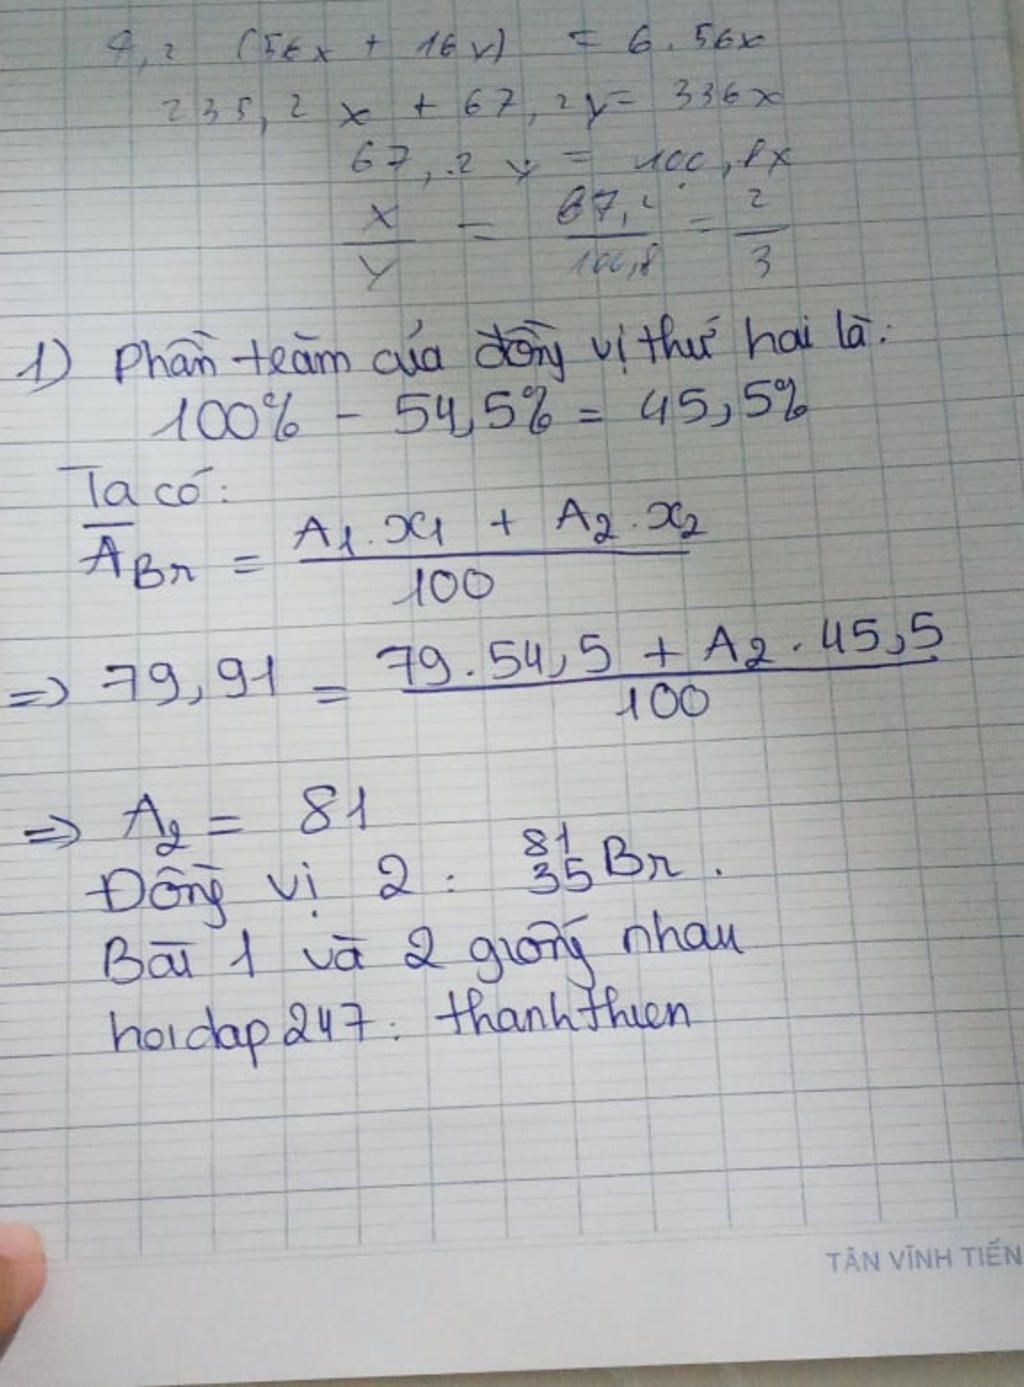 4,2 (56x + 16y) = 6.56x
235,2x + 67,2y = 336x
67,2y = 100,8x
x/y = 67,2/100,8 = 2/3
1) Phần trăm của đồng vị thứ hai là:
100% - 54,5% = 45,5%
Ta có:
A̅Br = (A1.x1 + A2.x2)/100
=> 79,91 = (79.54,5 + A2.45,5)/100
=> A2 = 81
Đồng vị 2: ⁸¹₃₅Br.
Bài 1 và 2 giống nhau
hoidap247: thanhthien
TÂN VĨNH TIẾN